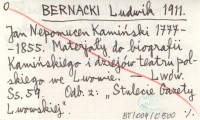 O
BERNACKI Ludwik 1911.
Jan Nepomucen Kamiński 1777-
-1855. Materjały do biografii
Kamińskiego i dziejów teatru pol-
skiego we Lwowie. — Lwów.
Ss. 59. Odb. z: "Stulecie Gazety
Lwowskiej".